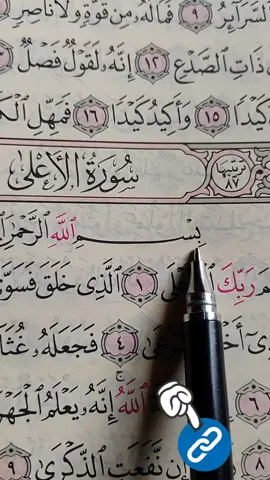 ٱلسَّرَآئِرُ ٩ فَمَا لَهُۥ مِن قُوَّةٍ وَلَا نَاصِرٍ
ذَاتِ ٱلصَّدْعِ ١٢ إِنَّهُۥ لَقَوْلٌ فَصْلٌ
كَيْدًا ١٥ وَأَكِيدُ كَيْدًا ١٦ فَمَهِّلِ
ترتيبها ٨٧ سُورَةُ ٱلْأَعْلَىٰ
بِسْمِ ٱللَّهِ ٱلرَّحْمَٰنِ
رَبِّكَ ١ ٱلَّذِى خَلَقَ فَسَوَّىٰ
٤ فَجَعَلَهُۥ غُثَآءً
٦ ٱللَّهُ إِنَّهُۥ يَعْلَمُ ٱلْجَهْرَ
٨ إِن نَّفَعَتِ ٱلذِّكْرَىٰ ٩